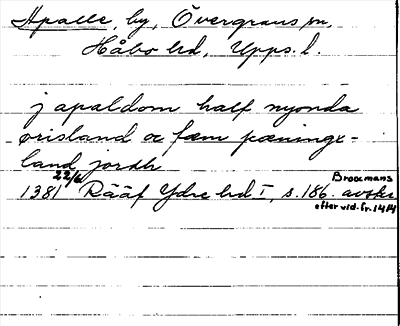 Apalle, by, Övergrans sn,
Håbo hd, Upps. l.
j apaldom half nyonda
örisland oc fæm pæningx-
land jordh
1381 22/6 Rääf Ydre hd I, s. 186. Broocmans avskr.
efter vid. fr. 1414